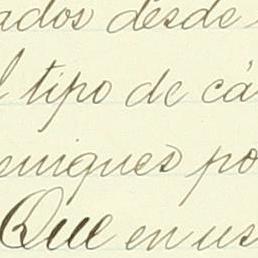 ados desde
l tipo de cá
eniques po
Que en us